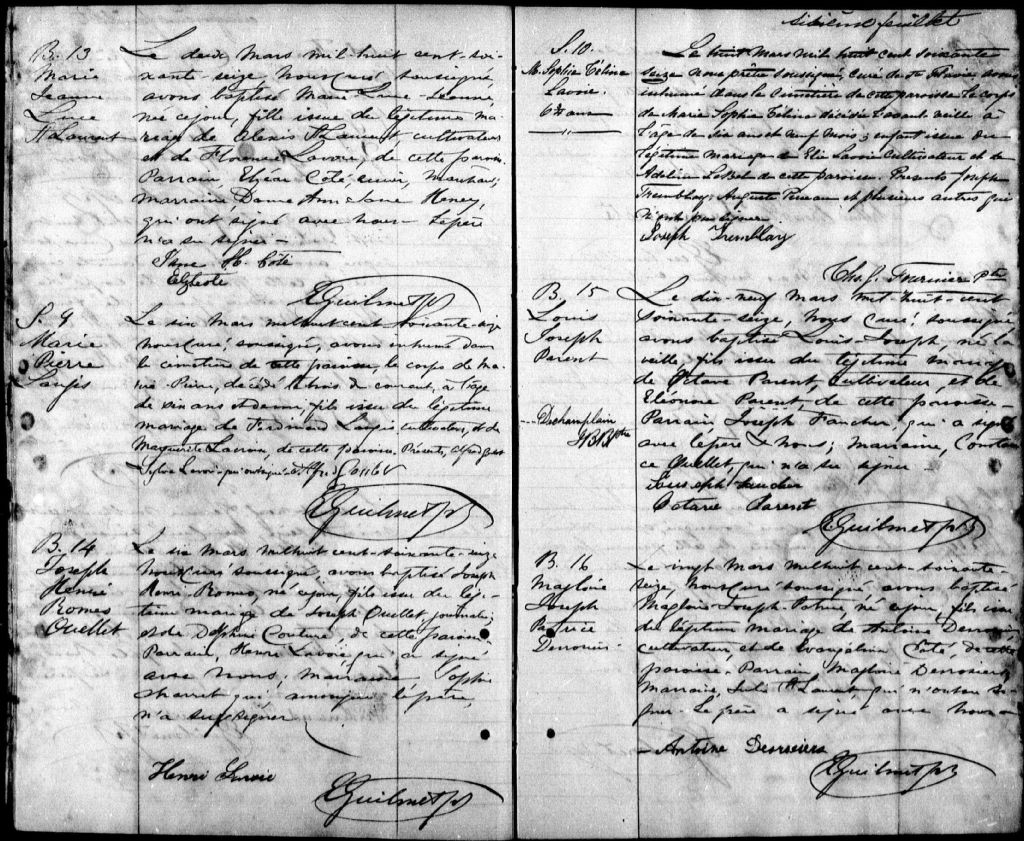 B. 13
Marie
Jeanne
Luce
St Laurent
Le deux Mars mil-huit cent-soi-
xante-seize, Nous Curé soussigné
avons baptisé Marie Luce-Jeanne,
née ce jour, fille issue du légitime ma-
riage de Alexis St Laurent, cultivateur
et de Florence Lavoie, de cette paroisse
Parrain, Elzéar Coté, marchand;
marraine Dame Ann Jane Heney,
qui ont signé avec nous. Le père
n'a su signer -
Jane H. Côté
Elz Coté
E Guilmet ptr
S. 9
Marie
Pierre
Langis
Le six Mars mil huit cent soixante-seize
nous Curé soussigné, avons inhumé dans
le cimetière de cette paroisse, le corps de Ma-
rie-Pierre, décédé le trois du courant, à l'âge
de dix ans et demi, fils issu du légitime
mariage de Ferdinand Langis, cultivateur, et de
Marguerite Lavoie, de cette paroisse, Présents, Alfred
Lavoie qui ont signé. Alfred
E Guilmet ptr
B. 14
Joseph
Henri
Romeo
Ouellet
Le six Mars mil huit cent-soixante-seize
nous Curé soussigné, avons baptisé Joseph
Henri Romeo, né ce jour, fils issu du légi-
time mariage de Joseph Ouellet, journalier;
et de Delphine Couture, de cette paroisse
Parrain, Henri Lavoie, qui a signé
avec nous; marraine, Sophie
Charret qui, ainsi que le père,
n'a su signer
Henri Lavoie
E Guilmet ptr
Sixième feuillet
S. 10.
M. Sophie Célina
Lavoie.
6¾ ans
Le huit Mars mil huit cent soixante
seize nous prêtre soussigné, curé de Ste Flavie, avons
inhumé dans le cimetière de cette paroisse le corps
de Marie Sophie Célina décédée l'avant veille à
l'âge de six ans et neuf mois; enfant issue du
légitime mariage de Elie Lavoie Cultivateur et de
Adeline LeBel de cette paroisse. Présents Joseph
Tremblay, Auguste et plusieurs autres qui
n'ont pas signer.
Joseph Tremblay
Chs. G. Fournier Ptre
B. 15
Louis
Joseph
Parent
Dechamplain
Ptre
Le dix-neuf Mars mil-huit-cent
soixante-seize, Nous Curé soussigné
avons baptisé Louis-Joseph, né la
veille, fils issu du légitime mariage
de Octave Parent, Cultivateur, et de
Eléonore Parent, de cette paroisse
Parrain Joseph Faucher, qui a signé
avec le père & nous; marraine, Constan-
ce Ouellet, qui n'a su signer
Joseph Faucher
Octave Parent
E Guilmet ptr
B. 16
Magloire
Joseph
Patrice
Derosiers
Le vingt Mars mil huit cent-soixante
seize, nous Curé soussigné, avons baptisé
Magloire-Joseph-Patrice, né ce jour, fils issu
du légitime mariage de Antoine Derosiers,
cultivateur, et de Evangéline Coté de cette
paroisse. Parrain Magloire Derosiers,
Marraine, Julie St Laurent qui n'ont su si-
gner. Le père a signé avec nous -
Antoine Desrosiers
E Guilmet ptr